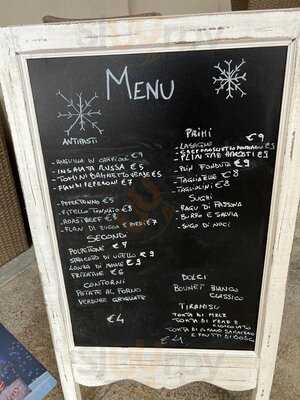 MENU
ANTIPASTI
- ANGUILLA IN CARPIONE €9
- INSALATA RUSSA €5
- TOMINI BAGNETTO VERDE €5
- FLAN PEPERONI €7
- PEPERONINO €5
- VITELLO TONNATO €8
- ROAST BEEF €8
- FLAN DI ZUCCA E PORRI €7
SECONDI
POLPETTONE €7
STRACOTTO DI VITELLO €9
LONZA DI MAIALE €9
FRICATINE €6
CONTORNI
PATATE AL FORNO
VERDURE GRIGLIATE
€4
PRIMI
- LASAGNE €9
- PLIN TRE ARROSTI €9
- PLIN FONDUTA €9
- TAGLIATELLE €8
- TAGLIOLINI €8
SUGHI
- RAGU DI FASSONA
- BURRO E SALVIA
- SUGO DI NOCI
DOLCI
BOUNET BIANCO
CLASSICO
TIRAMISU
TORTA DI MELE
TORTA DI PERE E
CIOCCOLATO
TORTA DI GRANO SARACENO
E FRUTTI DI BOSCO
€4